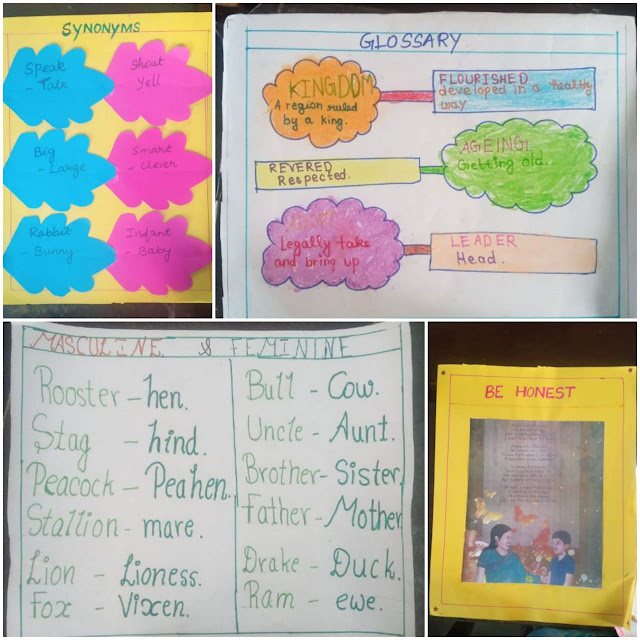 SYNONYMS
Speak
- Talk
Shout
Yell
Big
- Large
Smart
- Clever
Rabbit
- Bunny
Infant
- Baby
GLOSSARY
KINGDOM
A region ruled
by a king.
FLOURISHED
developed in a healthy
way
REVERED
Respected.
AGEING
Getting old.
Legally take
and bring up
LEADER
Head.
MASCULINE & FEMININE
Rooster - hen.
Stag - hind.
Peacock - Peahen.
Stallion - mare.
Lion - Lioness.
Fox - Vixen.
Bull - Cow.
Uncle - Aunt.
Brother - Sister
Father - Mother
Drake - Duck.
Ram - ewe.
BE HONEST